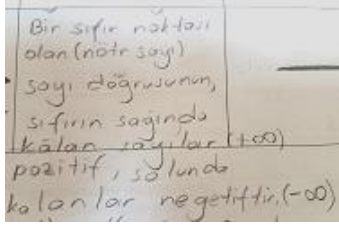 Bir sıfır noktası
olan (nötr sayı)
sayı doğrusunun,
sıfırın sağında
kalan sayılar (+∞)
pozitif, solunda
kalanlar negetiftir. (-∞)